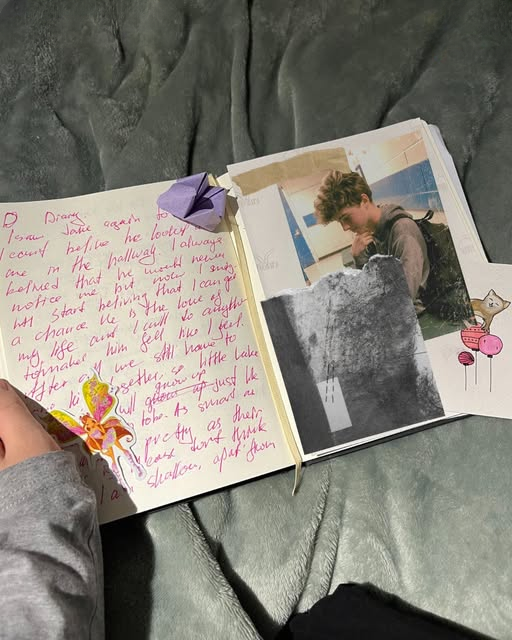 D Diary
I saw Jake again to
I count belive he looks
me in the hallway. I always
belived that he would never
notice me but now I
will start beliving that I can get
a chance. He is the love of
my life and I will to anythin
to make him fell like I feel.
After all we still have to
together, so little
will grow up just lik
As smart
pretty as their
dont think
I a shallow, apart from